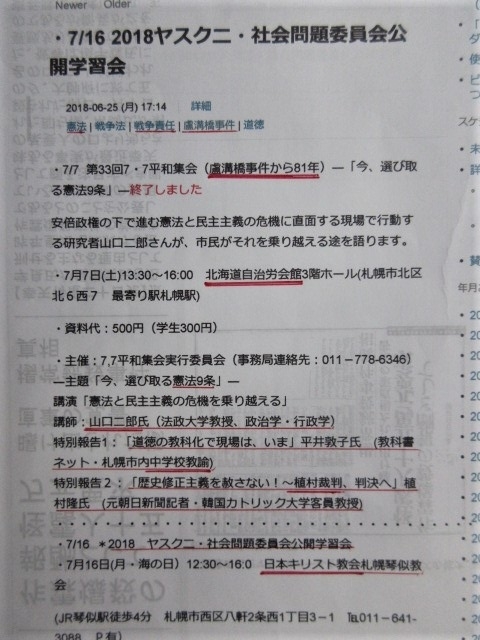 Newer Older
・7/16 2018ヤスクニ・社会問題委員会公
開学習会
2018-06-25 (月) 17:14 詳細
憲法 | 戦争法 | 戦争責任 | 盧溝橋事件 | 道徳
・7/7 第33回7・7平和集会（盧溝橋事件から81年）―「今、選び取
る憲法9条」―終了しました
安倍政権の下で進む憲法と民主主義の危機に直面する現場で行動す
る研究者山口二郎さんが、市民がそれを乗り越える途を語ります。
・7月7日(土)13:30～16:00 北海道自治労会館3階ホール(札幌市北区
北６西７ 最寄り駅札幌駅)
・資料代：500円（学生300円）
・主催：7,7平和集会実行委員会（事務局連絡先：011－778-6346）
―主題「今、選び取る憲法9条」―
講演「憲法と民主主義の危機を乗り越える」
講師：山口二郎氏（法政大学教授、政治学・行政学）
特別報告1：「道徳の教科化で現場は、いま」平井敦子氏 （教科書
ネット・札幌市内中学校教諭）
特別報告２：「歴史修正主義を赦さない！～植村裁判、判決へ」植
村隆氏 （元朝日新聞記者・韓国カトリック大学客員教授）
・7/16 ＊2018 ヤスクニ・社会問題委員会公開学習会
・7月16日(月・海の日）12:30～16:0 日本キリスト教会札幌琴似教
会
(JR琴似駅徒歩4分 札幌市西区八軒2条西1丁目3－1 ℡011－641-
3088 Ｐ有）